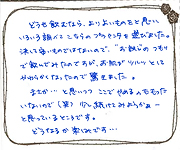 どうせ飲むなら、よりよいものをと思い
いろいろ調べてこちらのプラセンタを選びました。
決して安いものではないので、"お試しのつもり"
で飲んでみたのですが、お肌がツルツルと
わかりやすくなったので驚きました。
まさか…と思いつつ ここでやめるのももった
いないので(笑)少し続けてみようかなー
と思っているところです。
どうなるか楽しみです…